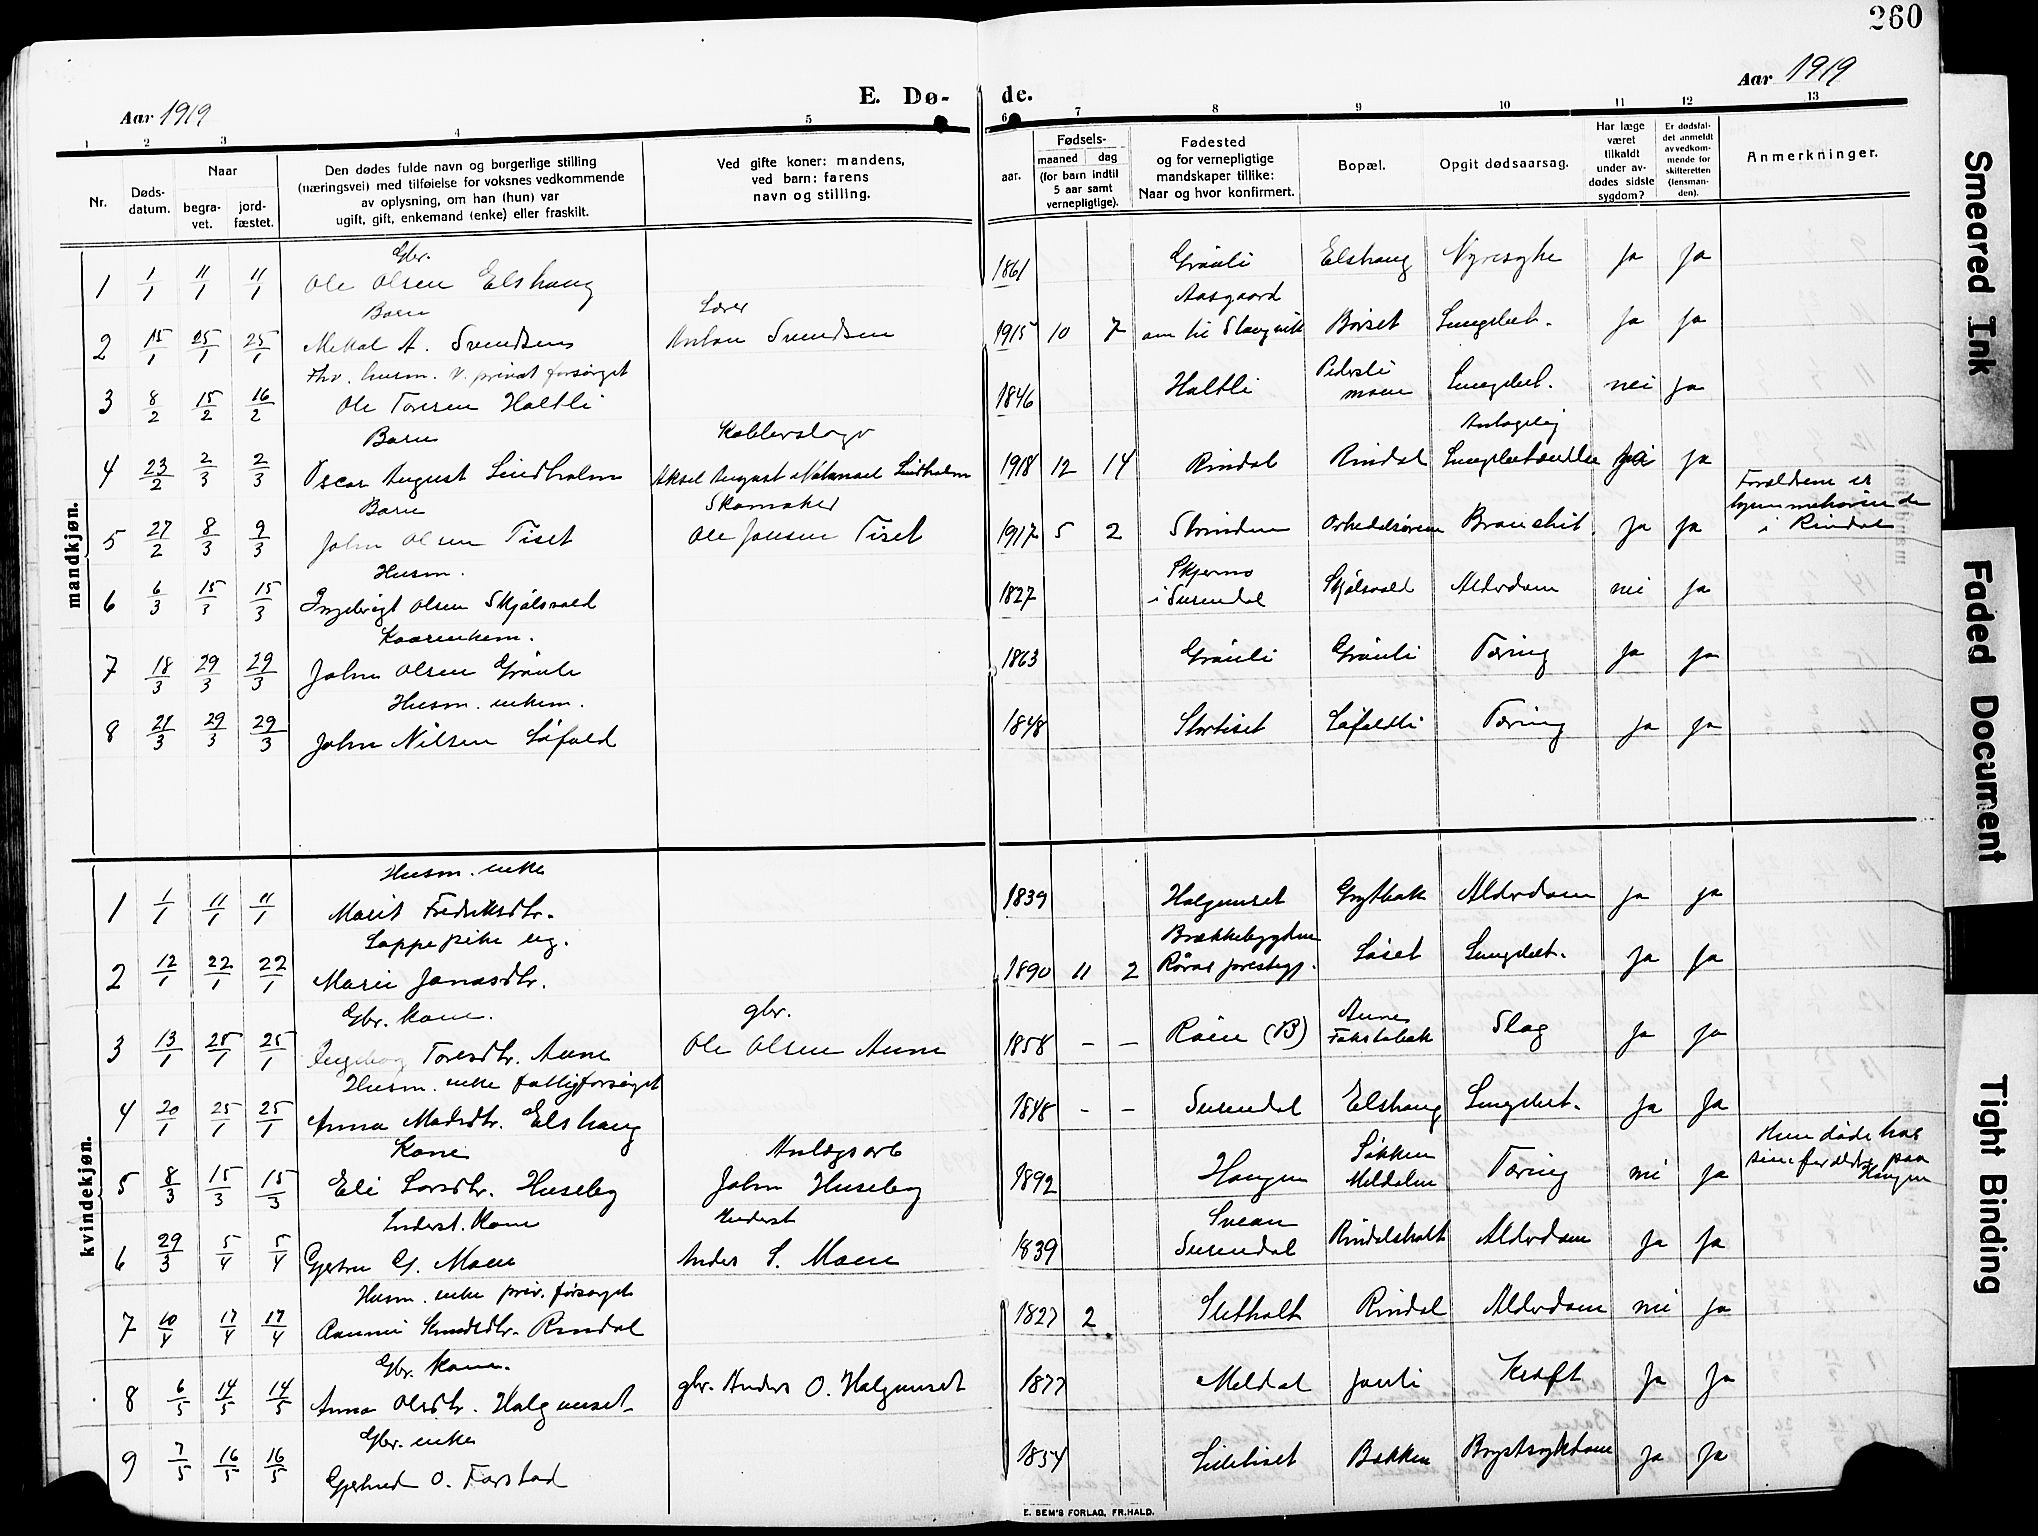 260
Aar 1919
E. Dø- de.
Aar 1919
1 2 3 4 5 6 7 8 9 10 11 12 13
Nr.
Døds-
datum.
Naar
begra-
vet.
jord-
fæstet.
Den dødes fulde navn og borgerlige stilling
(næringsvei) med tilføielse for voksnes vedkommende
av oplysning, om han (hun) var
ugift, gift, enkemand (enke) eller fraskilt.
Ved gifte koner: mandens,
ved barn: farens
navn og stilling.
Fødsels-
aar.
maaned dag
(for barn indtil
5 aar samt
vernepligtige).
Fødested
og for vernepligtige
mandskaper tillike:
Naar og hvor konfirmert.
Bopæl.
Opgit dødsaarsag.
Har læge
været
tilkaldt
under av-
dødes sidste
sygdom?
Er dødsfal-
det anmeldt
av vedkom-
mende for
skifteretten
(lensman-
den).
Anmerkninger.
mandkjøn.
Gbr.
1 1/1 11/1 11/1 Ole Olsen Elshaug 1861 Grønli Elshaug Nyresyke Ja Ja
Barn Lærer Aasgaard
2 15/1 25/1 25/1 Mikal A. Svendsen Anton Svendsen 1915 10 7 Børset Lungebet. Ja Ja
Fhv. husm. v. privat forsørget
3 8/2 15/2 16/2 Ole Toresen Holtli 1846 Holtli Pedersli moen Lungebet. nei Ja
Barn Kobberslager Antagelig
4 23/2 2/3 2/3 Oscar August Lindholm Aksel August Natanael Lindholm 1918 12 14 Rindal Rindal Ja
Barn Skomaker
5 27/2 8/3 9/3 John Olsen Tiset Ole Jonsen Tiset 1917 5 2 Strinden Ja Ja
Forældrene er
i Rindal
Husm.
6 6/3 15/3 15/3 Ingebrigt Olsen Skjølsvold 1827 Skjermo i Surendal Skjølsvold Alderdom nei Ja
Kaarenkem.
7 18/3 29/3 29/3 John Olsen Grønli 1863 Grønli Grønli Tæring Ja Ja
Husm. enkem.
8 21/3 29/3 29/3 John Nilsen Løfald 1848 Stortiset Løfaldli Tæring Ja Ja
kvindekjøn.
Husm. enke
1 1/1 11/1 11/1 Marit Fredriksdtr. 1839 Halgunset Grytbak Alderdom Ja Ja
Lappepike ug. Brækkebygden
2 12/1 22/1 22/1 Marie Jonasdtr. 1890 11 2 Røros prestegj. Løset Lungebet. Ja Ja
Gbr. kone. gbr.
3 13/1 25/1 25/1 Ingebog Toresdtr. Aune Ole Olsen Aune 1858 - - Røen (B) Aune Slag Ja Ja
Husm. enke fattigforsørget
4 20/1 25/1 25/1 Anna Madsdtr. Elshaug 1848 - - Surendal Elshaug Lungebet. Ja Ja
Kone Anlægsarb
5 8/3 15/3 15/3 Eli Larsdtr. Huseby John Huseby 1892 Haugen Løkken Meldalen Tæring nei Ja
Hun døde hos
sine forældre paa
Haugen
Inderst. kone Inderst
6 29/3 5/4 5/4 Gjertru G. Moen Anders S. Moen 1839 Svean Surendal Rindalsholt Alderdom Ja Ja
Husm. enke priv. forsørget
7 10/4 17/4 17/4 Rannei Knudsdtr. Rindal 1827 2 Sletholt Rindal Alderdom nei Ja
Gbr. kone.
8 6/5 14/5 14/5 Anna Olsdtr. Halgunset gbr. Anders O. Halgunset 1877 Meldal Jønli Kræft Ja Ja
Gbr. enke
9 7/5 16/5 16/5 Gjertrud O. Farstad 1834 Lilletiset Bakken Brystsykdom Ja Ja
E. BEM'S FORLAG, FR. HALD.
Smeared Ink
Faded Document
Tight Binding